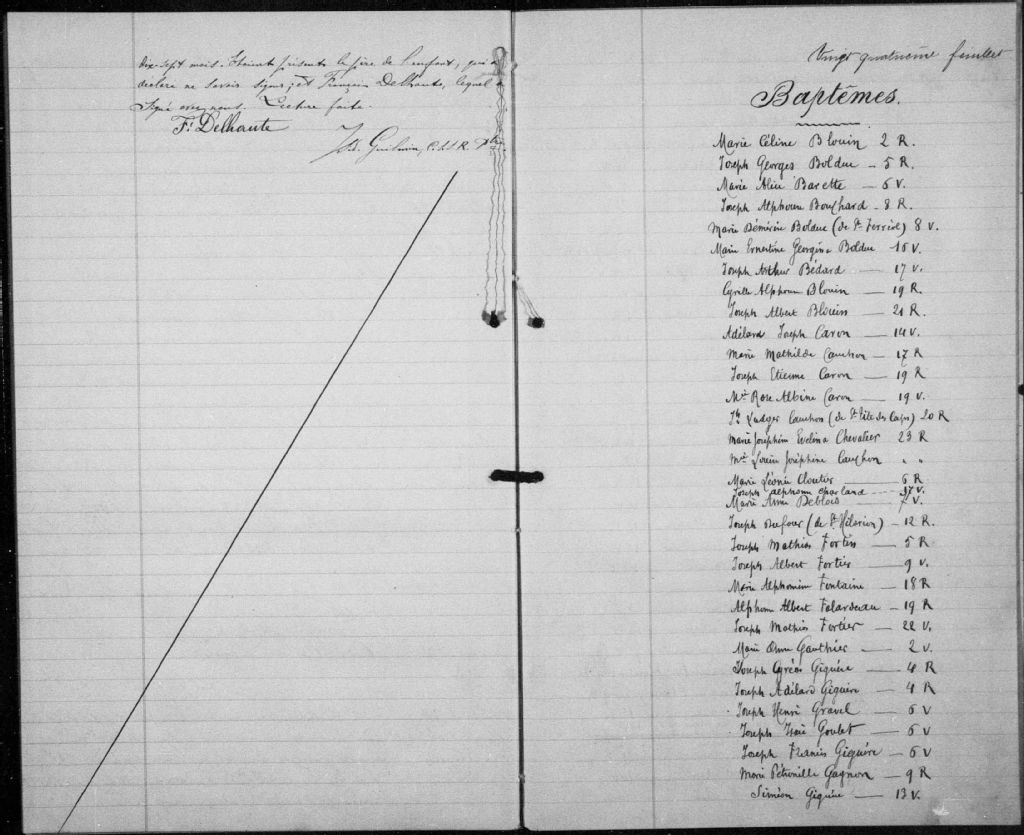 dix-sept mois. Etaient présents le père de l'enfant, qui a
déclaré ne savoir signer, et François Delhaute, lequel a
signé avec nous. Lecture faite.
F. Delhaute
Ptre.
Vingt quatrième feuillet
Baptêmes.
Marie Céline Blouin 2 R.
Joseph Georges Bolduc - 5 R.
Marie Alice Barette - 6 V.
Joseph Alphonse Bouchard - 8 R.
Marie Bolduc (de St. Ferréol) 8 V.
Marie Ernestine Georgina Bolduc 16 V.
Joseph Arthur Bédard — 17 V.
Cyrille Alphonse Blouin — 19 R.
Joseph Albert Blouin — 21 R.
Adélard Joseph Caron — 14 V.
Marie Mathilde Cauchon — 17 R
Joseph Etienne Caron — 19 R
Mie Rose Albina Caron — 19 V.
Jh Ludger Cauchon (de St. Tite des Caps) 20 R
Marie Joséphine Evelina Chevalier 23 R
Mie Louise Joséphine Cauchon " "
Marie Léonie Cloutier — 6 R
Joseph Alphonse Charland --- 17 V.
Marie Anna Deblois — 7 V.
Joseph Dufour (de St. Hilarion) — 12 R.
Joseph Mathias Fortin — 5 R
Joseph Albert Fortier — 9 V.
Marie Alphonsine Fontaine — 18 R
Alphonse Albert Falardeau — 19 R
Joseph Mathias Fortier — 22 V.
Marie Anna Gauthier — 2 V.
Joseph Cyréas Giguère — 4 R
Joseph Adélard Giguère — 4 R
Joseph Henri Gravel — 6 V
Joseph Isaïe Goulet — 6 V
Joseph Francis Giguère — 6 V
Marie Pétronille Gagnon — 9 R
Siméon Giguère — 13 V.